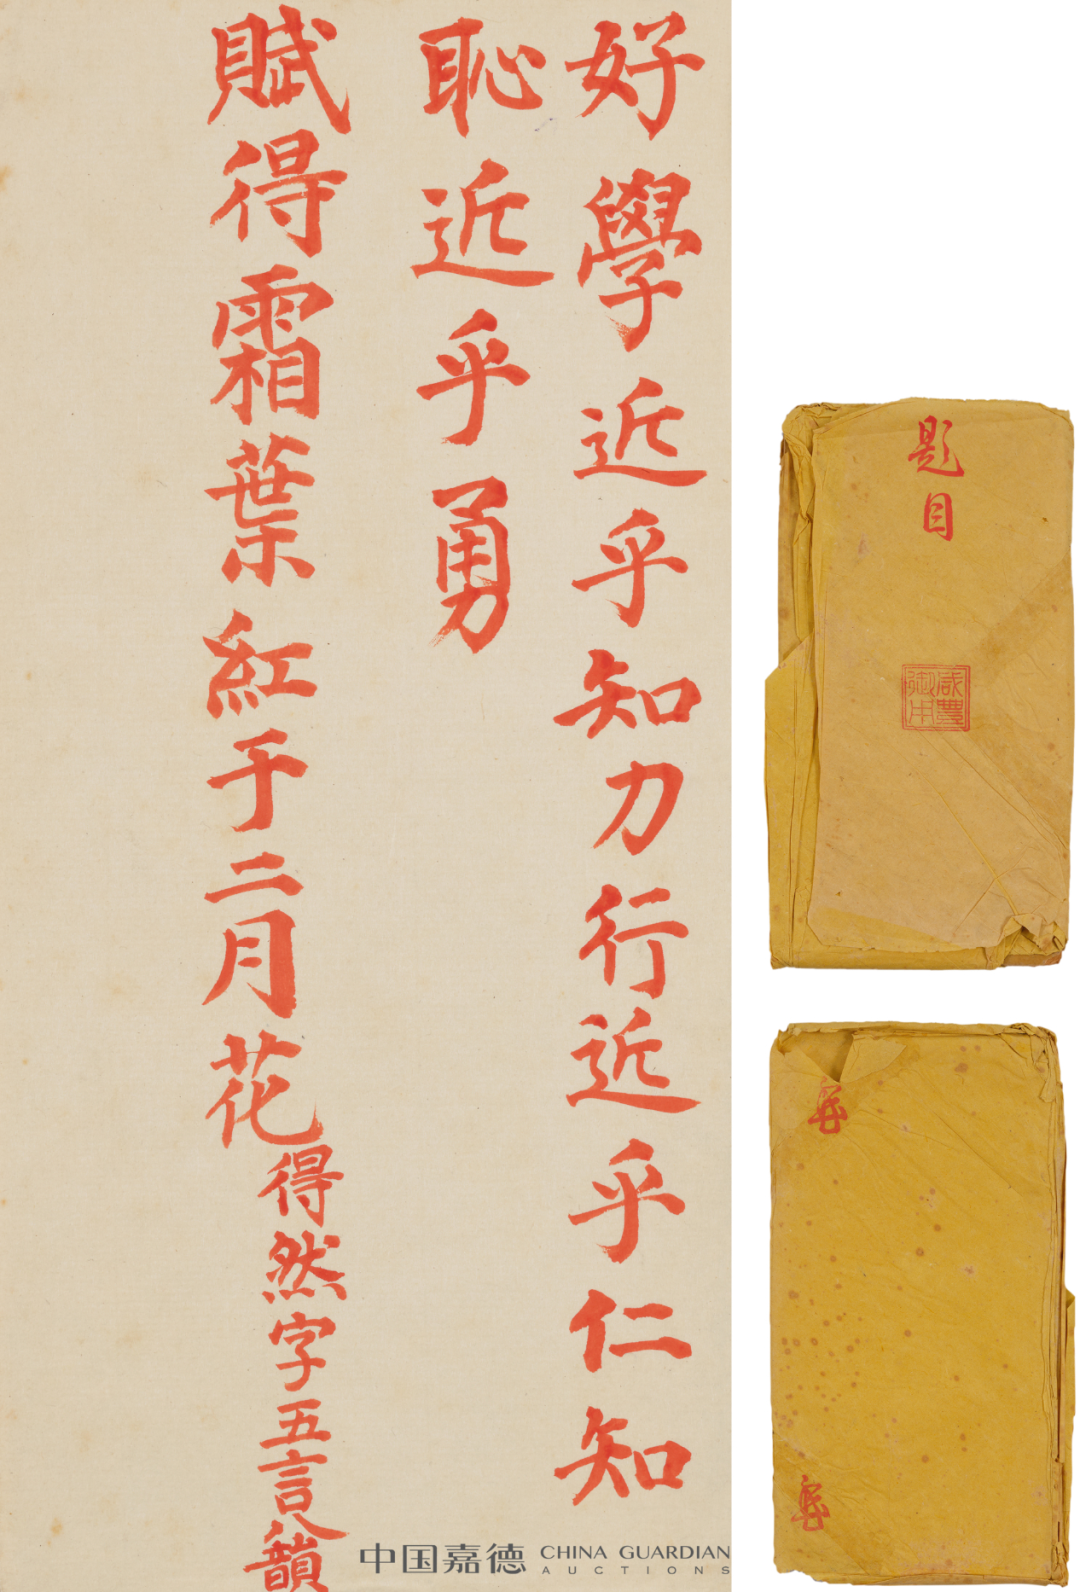 好學近乎知力行近乎仁知
恥近乎勇
賦得霜葉紅于二月花得然字五言八韻
題目
咸豐御用
中国嘉德 CHINA GUARDIAN
AUCTIONS